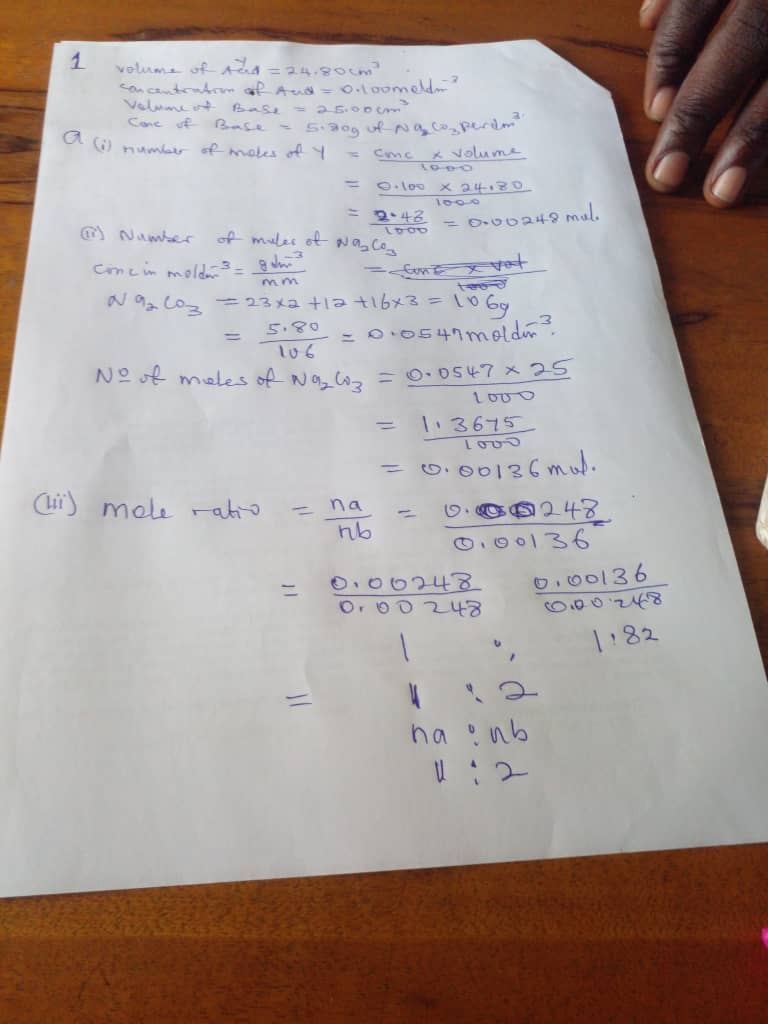 1
volume of Acid Y = 24.80cm³
Concentration of Acid = 0.100moldm⁻³
Volume of Base = 25.00cm³
Conc of Base = 5.80g of Na₂CO₃ perdm³.
a (i) number of moles of Y = conc x volume / 1000
= 0.100 x 24.80 / 1000
= 2.48 / 1000 = 0.00248 mol.
(ii) Number of moles of Na₂CO₃
Conc in moldm⁻³ = gdm⁻³ / mm = conc x vol / 1000
Na₂CO₃ = 23x2 + 12 + 16x3 = 106g
= 5.80 / 106 = 0.0547moldm⁻³.
No of moles of Na₂CO₃ = 0.0547 x 25 / 1000
= 1.3675 / 1000
= 0.00136 mol.
(iii) mole ratio = na / nb = 0.00248 / 0.00136
= 0.00248 / 0.00248 0.00136 / 0.00248
1 : 1.82
= 1 : 2
na : nb
1 : 2